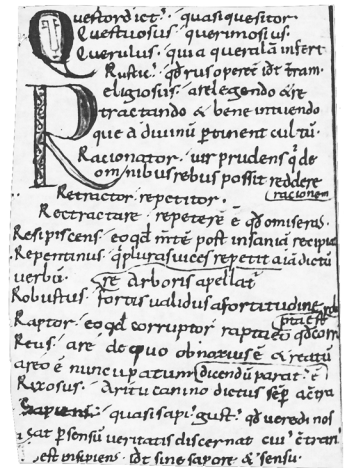 Questor dict · quasi quesitor ·
Questuosus · querimosius ·
Querulus · quia queralā infert
Rustic · qđ rus operet iđt t̄ram ·
Religiosus · a relegendo & re
tractando & bene intuendo
que a divinū p̄tinent cultū ·
Racionator · uir prudens q̄ de
omnibus rebus possit reddere
racionem
Retractor · repetitor ·
Rectractare · repetere ē qđ omiseras ·
Resipiscens · eo qđ m̄te post insaniā recipiat
Repentinus · q̄ plurasuices repetit dictū
verbū · arboris apellat̄
Robustus · fortis validus a fortitudine
Raptor · eo qđ corruptor
Reus · a re de quo obnoxius ē & reatū
a reo ē nuncupatum dicendū parat · ē
Rixosus · a rictu canino dictus sēp
Sapiens · quasi sapi · gust · qđ veredi nos
sat p̄ sensū veritatis discernat cui t̄rari
est insipiens · iđt sine sapore & sensu ·